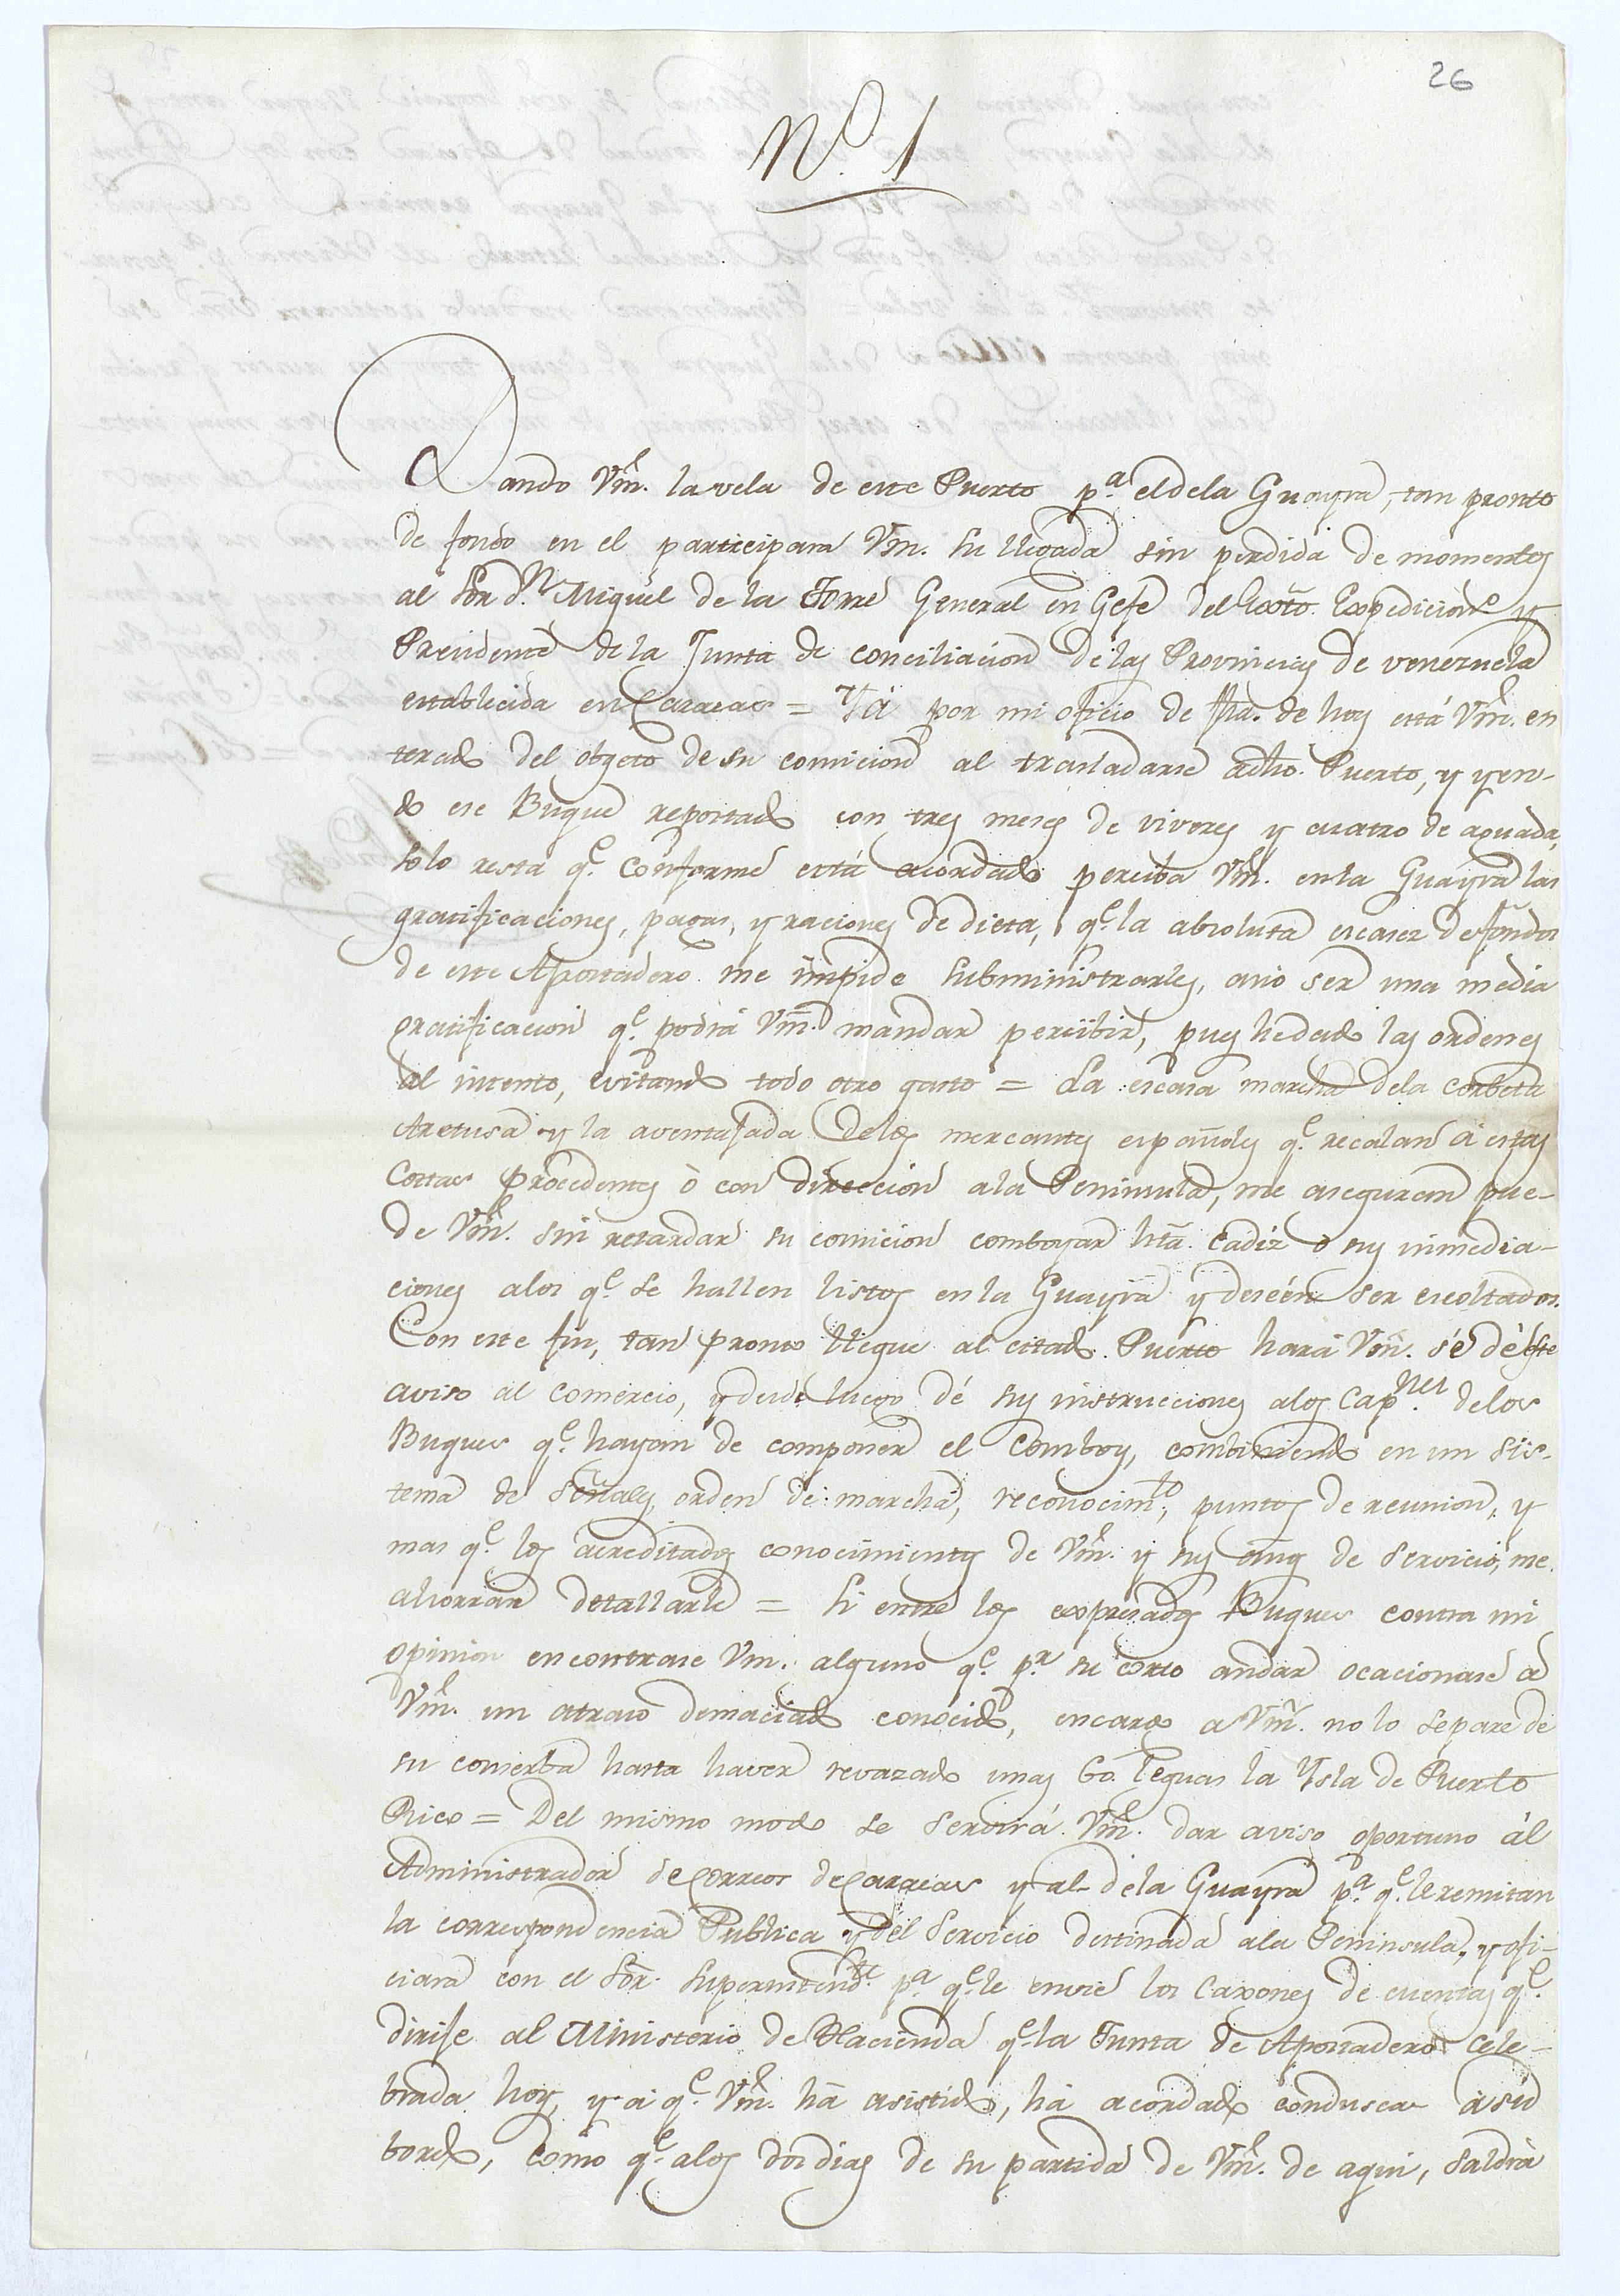 26
Nº. 1
Dando Vm. la vela de este Puerto pª. el de la Guayra, tan pronto
de fondo en el participara Vm. su llegada sin perdida de momentos
al Sor. dn. Miguel de la Torre General en Gefe del Exto. Expedicione. y
Presidente de la Junta de conciliacion de las Provincias de venezuela
establecida en Caracas = Ya por mi oficio de fha. de hoy está Vm. en
terado del obgeto de su comicion al trasladarse adho. Puerto, y yen-
do ese Buque repostado con tres meses de viveres y cuatro de aguada,
solo resta qe. conforme está acordado perciba Vm. en la Guayra las
gratificaciones, pagas, y raciones de dieta, qe. la absoluta escasez de fondos
de este Apostadero me impide subministrarles, ano ser una media
gratificacion qe. podrá Vm. mandar percibir, pues he dado las ordenes
al intento, evitando todo otro gasto = La escasa marcha de la corbeta
Aretusa y la aventajada de los mercantes españoles qe. recalan á estas
Costas procedentes ò con direccion a la Peninsula, me aseguran pue-
de Vm. sin retardar su comicion comboyar hta. Cadiz o sus inmedia-
ciones alos qe. se hallen listos en la Guayra y deseén ser escoltados.
Con este fin, tan pronto llegue al citado Puerto hará Vm. sé dé este
aviso al comercio, y desde luego dé sus instrucciones alos Capnes. de los
Buques qe. hayan de componer el Comboy, combiniendo en un sis-
tema de señales, orden de marcha, reconocimto., puntos de reunion, y
mas qe. los acreditados conocimientos de Vm. y sus añs de servicio, me
ahorran detallarle = Si entre los expresados Buques contra mi
opinion encontrase Vm. alguno qe. pr. su corto andar ocacionase á
Vm. un atraso demaciado conocido, encargo a Vm. no lo separe de
su conserba hasta haver revazado unas 60. leguas la Ysla de Puerto
Rico = Del mismo modo se servirá Vm. dar aviso oportuno ál
Administrador de Correos de Caracas y al de la Guayra pª. qe. le remitan
la correspondencia Publica y del Servicio destinada ala Peninsula, y ofi-
ciará con el Sor. Superintendte. pª. qe. le envie los Caxones de cuentas qe.
dirije al Ministerio de Hacienda qe. la Junta de Apostadero cele-
brada hoy, y á qe. Vm. há asistido, há acordado condusca á su
bordo, como qe. alos dos dias de su partida de Vm. de aqui, saldrá